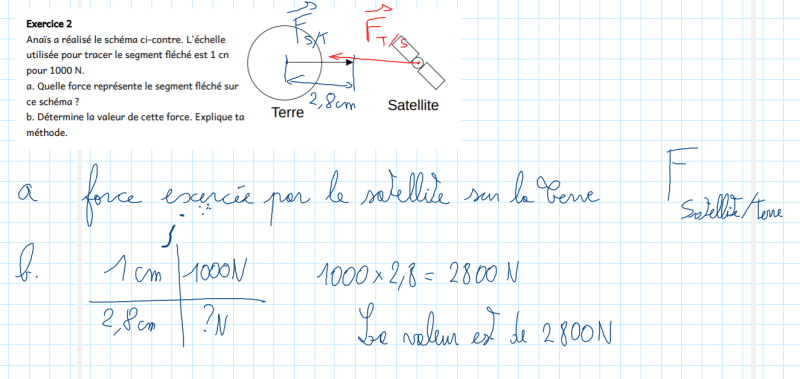 Exercice 2
Anaïs a réalisé le schéma ci-contre. L'échelle
utilisée pour tracer le segment fléché est 1 cn
pour 1000 N.
a. Quelle force représente le segment fléché sur
ce schéma ?
b. Détermine la valeur de cette force. Explique ta
méthode.
F S/T
F T/S
2,8cm
Terre
Satellite
a force exercée par le satellite sur la Terre
F Satellite/terre
b. 1 cm 1000N 1000 × 2,8 = 2800 N
2,8cm ?N La valeur est de 2800N